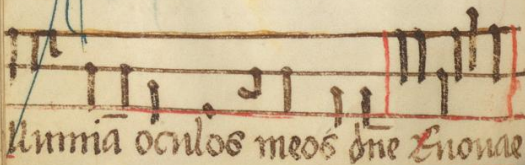 llumiā oculos meos dn̄e Euouae